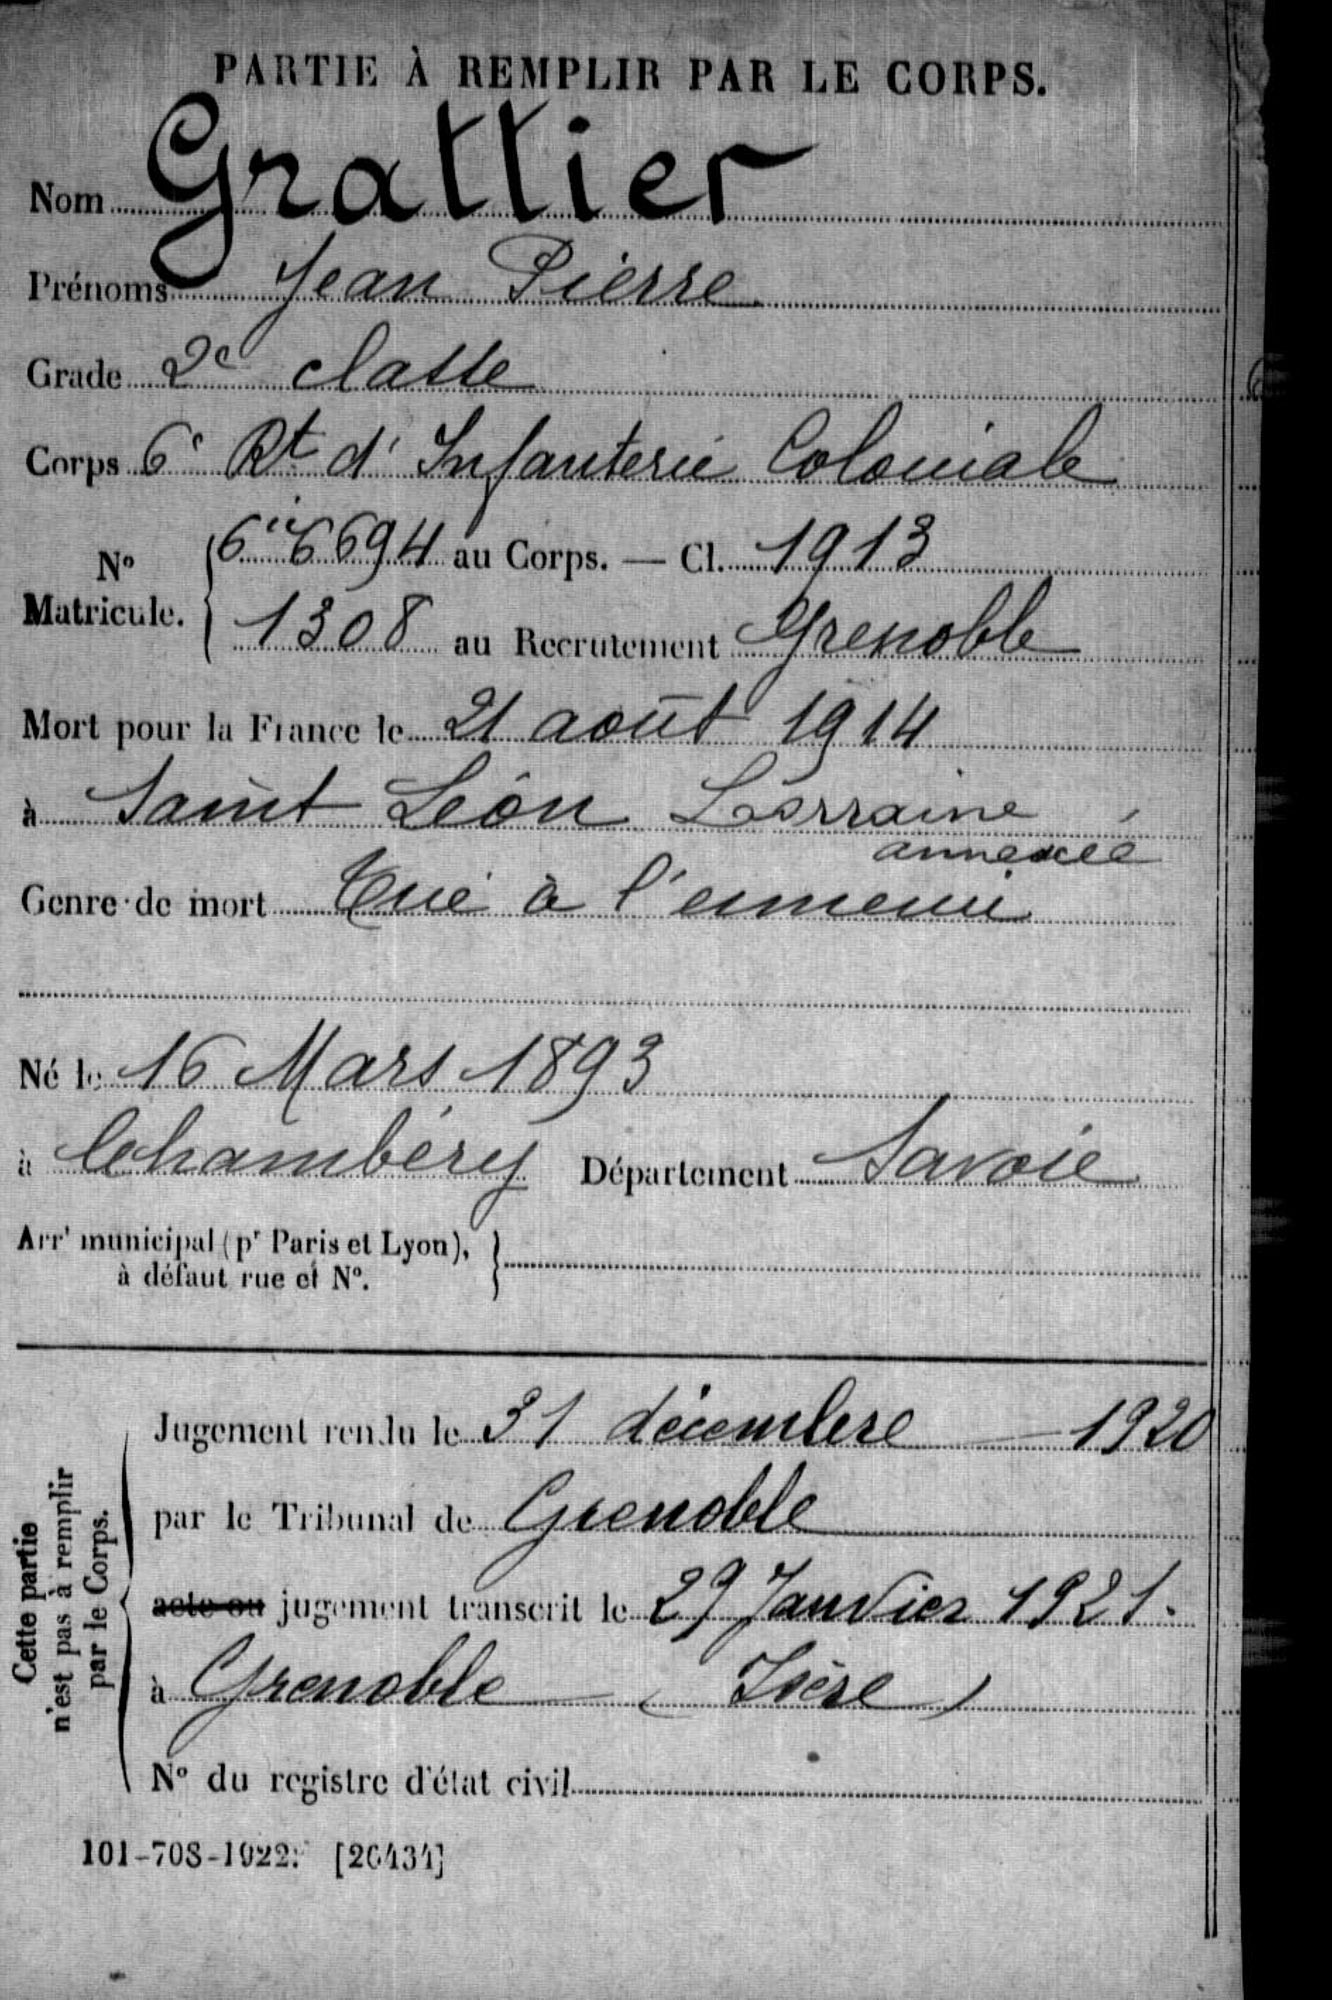 PARTIE À REMPLIR PAR LE CORPS.
Nom Grattier
Prénoms Jean Pierre
Grade 2e classe
Corps 6e Rt d'Infanterie Coloniale
No Matricule. { 6694 au Corps. — Cl. 1913
1308 au Recrutement Grenoble
Mort pour la France le 21 août 1914
à Saint Léon Lorraine
annexée
Genre de mort Tué à l'ennemi
Né le 16 Mars 1893
à Chambéry Département Savoie
Arrt municipal (pr Paris et Lyon), }
à défaut rue et No.
Cette partie
n'est pas à remplir
par le Corps.
Jugement rendu le 31 décembre 1920
par le Tribunal de Grenoble
acte ou jugement transcrit le 29 Janvier 1921.
à Grenoble (Isère)
No du registre d'état civil
101-708-1922. [26434]